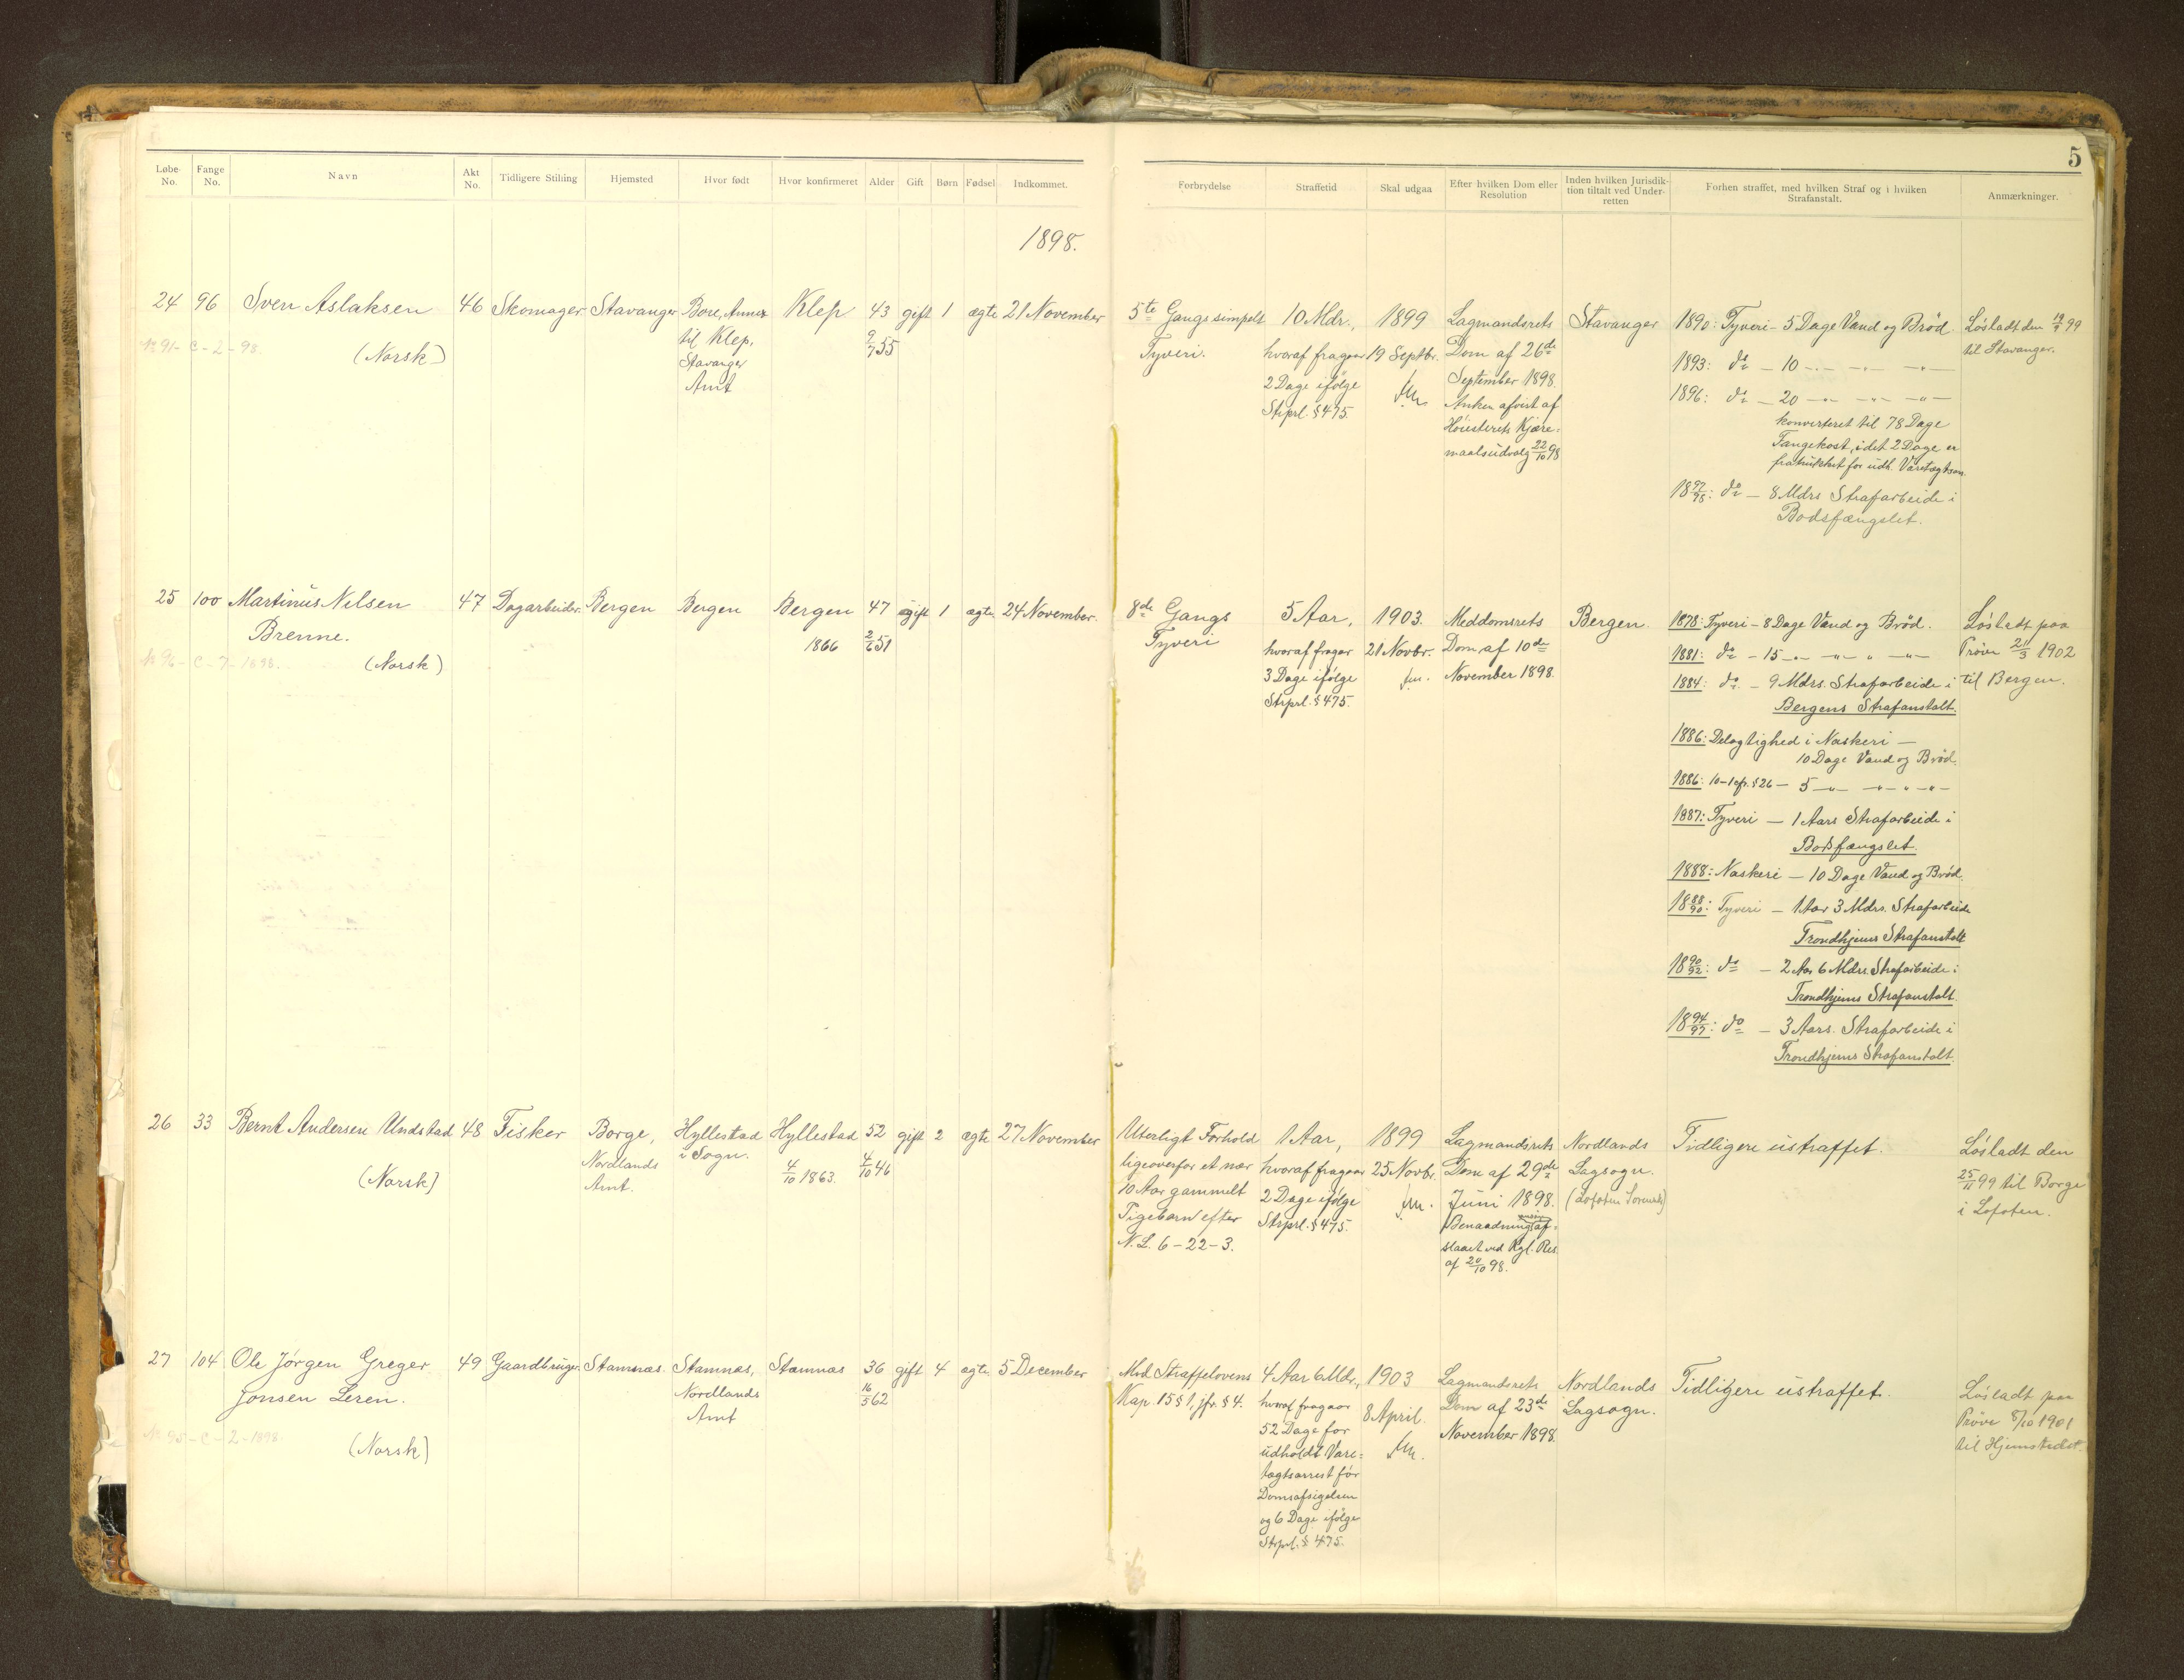 5
Løbe-No.
Fange No.
Navn
Akt No.
Tidligere Stilling
Hjemsted
Hvor født
Hvor konfirmeret
Alder
Gift
Børn
Fødsel
Indkommet.
Forbrydelse
Straffetid
Skal udgaa
Efter hvilken Dom eller Resolution
Inden hvilken Jurisdik-
tion tiltalt ved Under-
retten
Forhen straffet, med hvilken Straf og i hvilken
Strafanstalt.
Anmærkninger.
1898.
24
96
Sven Aslaksen
(Norsk)
No 91-C-2-98.
46
Skomager
Stavanger
Bore, Annex
til Klep,
Stavanger
Amt
Klep
43
9/7 55
gift
1
ægte
21 November
5te Gangs simpelt
Tyveri.
10 Mdr.,
hvoraf fragaar
2 Dage ifølge
Strprl. § 475.
1899
19 Septbr.
Lagmandsrets
Dom af 26de
September 1898.
Anken afvist af
Høiesterets Kjære=
maalsudvalg 22/10 98
Stavanger
1890: Tyveri - 5 Dage Vand og Brød.
1893: do - 10 -"- -"- -"-
1896: do - 20 -"- -"- -"-
konverteret til 78 Dage
Fangekost, idet 2 Dage er
fratrukket for udh. Varetægtsarr.
18 97/98: do - 8 Mdrs Strafarbeide i
Bodsfængslet.
Løsladt den 19/9 99
til Stavanger.
25
100
Martinus Nilsen
Brenne.
No 96-C-7-1898.
(Norsk)
47
Dagarbeider.
Bergen
Bergen
Bergen
1866
47
2/6 51
gift
1
ægte
24 November.
8de Gangs
Tyveri
5 Aar,
hvoraf fragaar
3 Dage ifølge
Strprl. § 475.
1903.
21 Novbr.
Meddomsrets
Dom af 10de
November 1898.
Bergen.
1878: Tyveri - 8 Dage Vand og Brød.
1881: do - 15 -"- -"- " -"-
1884: do. - 9 Mdrs. Strafarbeide i
Bergens Strafanstalt.
1886: Delagtighed i Naskeri -
10 Dage Vand og Brød.
1886: 10-1 cfr. § 26 - 5 -"- -"- " -"-
1887: Tyveri - 1 Aars Strafarbeide i
Bodsfængslet.
1888: Naskeri - 10 Dage Vand og Brød.
18 88/90: Tyveri - 1 Aar 3 Mdrs. Strafarbeide
Trondhjems Strafanstalt
18 90/92: do - 2 Aar 6 Mdrs. Strafarbeide i
Trondhjems Strafanstalt.
18 94/97: do - 3 Aars. Strafarbeide i
Trondhjems Strafanstalt.
Løsladt paa
Prøve 21/3 1902
til Bergen.
26
33
Bernt Andersen Undstad
(Norsk)
48
Fisker
Borge,
Nordlands
Amt.
Hyllestad
i Sogn.
Hyllestad
4/10 1863.
52
4/10 46
gift
2
ægte
27 November
Utterligt Forhold
ligeoverfor et nær
10 Aar gammelt
Pigebarn efter
N. L. 6-22-3.
1 Aar,
hvoraf fragaar
2 Dage ifølge
Strprl. § 475.
1899
25 Novbr.
Lagmandsrets
Dom af 29de
Juni 1898.
Benaadning af=
slaaet ved Kgl. Res.
af 20/10 98.
Nordlands
Lagsogn.
(Lofoten Sorensk)
Tidligere ustraffet.
Løsladt den
25/11 99 til Borge
i Lofoten.
27
104
Ole Jørgen Greger
Jonsen Leren.
No 95-C-2-1898.
(Norsk)
49
Gaardbruger.
Stamnæs
Stamnæs,
Nordlands
Amt
Stamnæs
36
16/5 62
gift
4
ægte
5 December
Mod Straffelovens
Kap. 15 § 1, jfr. § 4.
4 Aar 6 Mdr.,
hvoraf fragaar
52 Dage for
udholdt Vare=
tægtsarrest før
Domsafsigelsen
og 6 Dage ifølge
Strprl. § 475.
1903
8 April.
Lagmandsrets
Dom af 23de
November 1898.
Nordlands
Lagsogn.
Tidligere ustraffet.
Løsladt paa
Prøve 8/10 1901
til Hjemstedet.